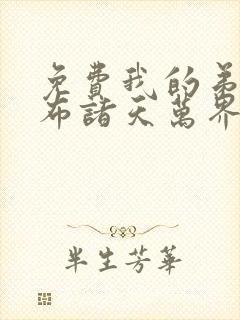 免費我的弟
布諸天萬界
半生芳華